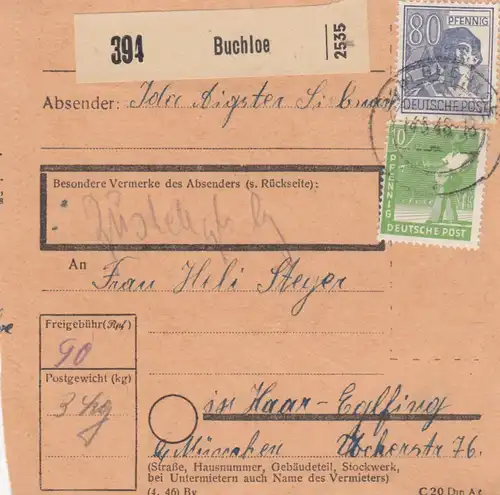 394 Buchloe 2535
80 PFENNIG
DEUTSCHE POST
Absender: Ida Aigster
10 PFENNIG
DEUTSCHE POST
Besondere Vermerke des Absenders (s. Rückseite):
Zustellgeb
An Frau Heli Steger
Freigebühr (Rpf)
90
Postgewicht (kg)
3 kg
in Haar-Eglfing
b/ München Ockerstr 76.
(Straße, Hausnummer, Gebäudeteil, Stockwerk,
bei Untermietern auch Name des Vermieters)
(4. 46) By
C 20 Din A